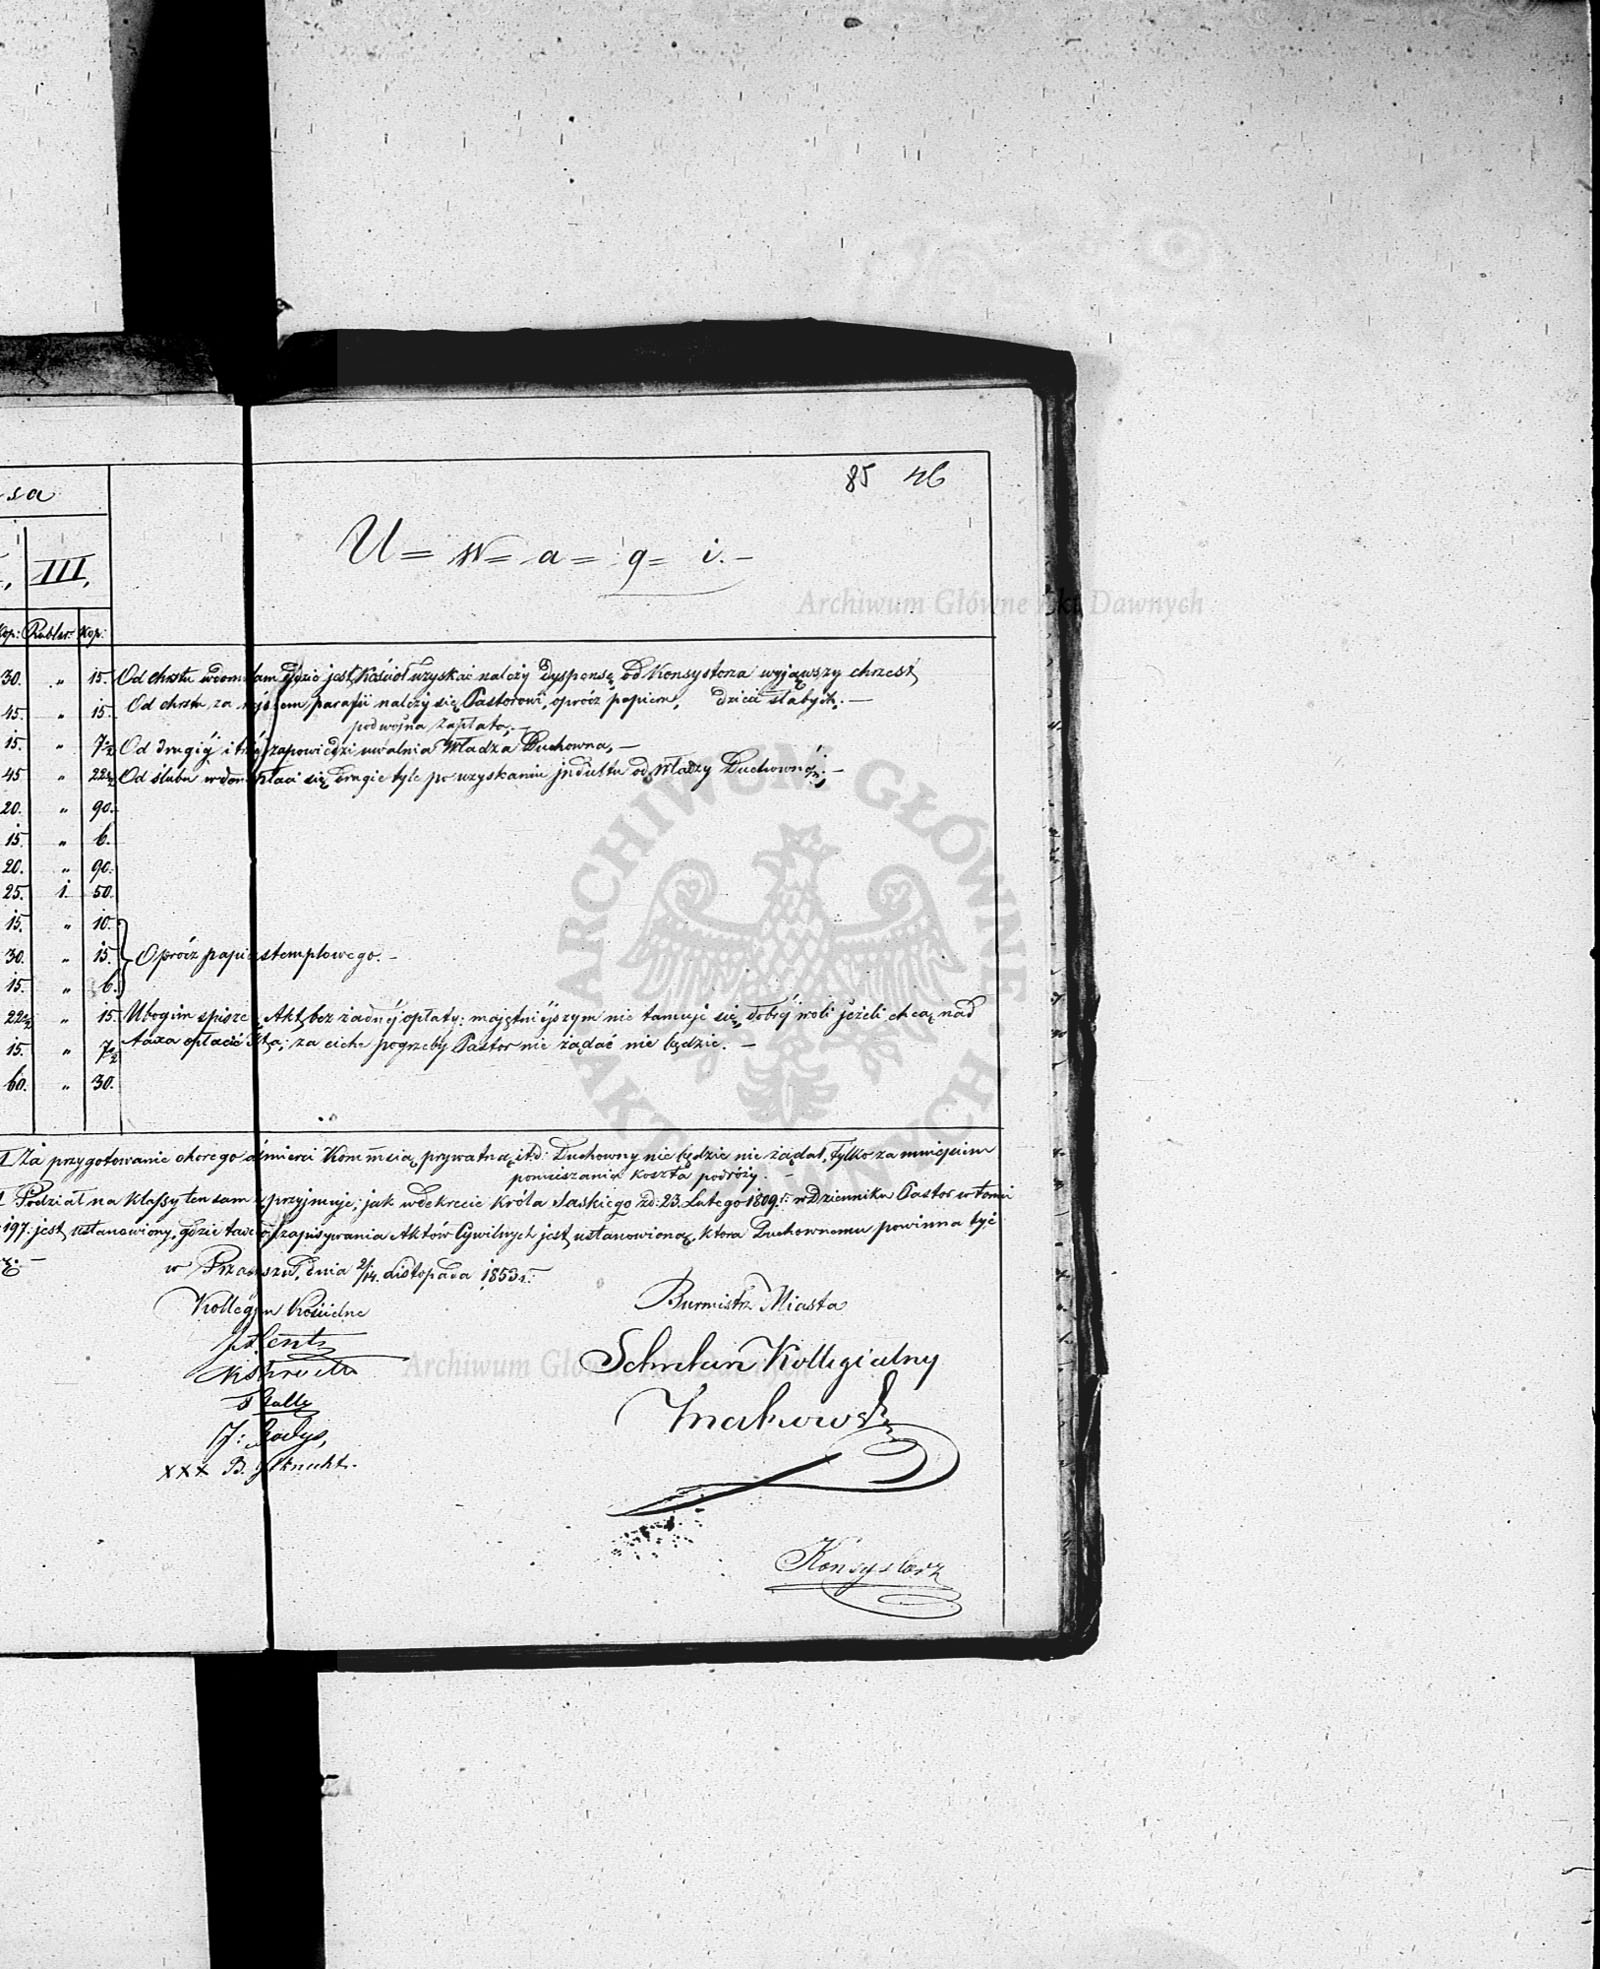 85 46
sa
U = w = a = g = i. —
III,
Kop: Rublsr. Kop:
30. " 15. Od chrztu w domu tam gdzie jest Kościół uzyskać należy Dyspensę od Konsystorza wyjąwszy chrzest
dzieci słabych. —
45. " 15. Od chrztu, za obrębem parafii należy się Pastorowi, oprócz papieru,
podwójna zapłata, —
15. " 7½ Od drugiéj i trzéj zapowiedzi uwalnia Władza Duchowna, —
45 " 22½ Od ślubu w domu płaci się drugie tyle po uzyskaniu jndultu od Władzy Duchownéj; —
20. " 90.
15 " 6.
20. " 90.
25. 1. 50.
15. " 10.
30. " 15. Oprócz papieru stemplowego. —
15. " 6.
22½ " 15. Ubogim spisze się Akt bez żadnéj opłaty: majętniejszym nie tamuje się dobréj woli jeżeli chcą nad
15. " 7½ taxa opłacić; za ciche pogrzeby Pastor nie żądać nie będzie. —
60. " 30.
Za przygotowanie chorego do śmierci Kommnią prywatną itd: Duchowny nie będzie nic żądał, tylko za mniejscim
pomieszania koszta podróży. —
Podział na klassy ten sam przyjmuje; jak w dekrecie Króla Saskiego zd: 23. Lutego 1809 r: w Dzienniku Praw w tomie
197. jest ustanowiony, gdzie taxa od zapisywania Aktów Cywilnych jest ustanowiona, która Duchownemu powinna być
w Przasnyszu, dnia 2/14. Listopada 1853 r: —
Kollegjum Kościelne
Burmistrz Miasta
Sekretarz Kollegialny
Makowski
XXX B.
Konsystorz
Archiwum Główne Akt Dawnych
ARCHIWUM GŁÓWNE AKT DAWNYCH
Archiwum Główne Akt Dawnych